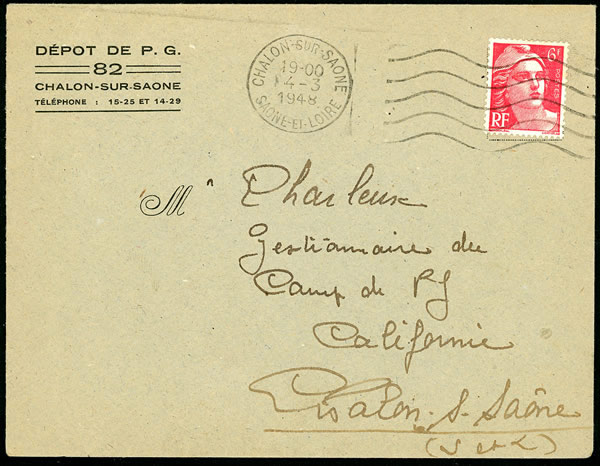 DÉPOT DE P. G.
82
CHALON-SUR-SAONE
TÉLÉPHONE : 15-25 ET 14-29
CHALON-SUR-SAONE
19-00
4-3
1948
SAONE-ET-LOIRE
6F
POSTES
RF
M r Charleux
Gestionnaire du
Camp de PG
Californie
Chalon-s-Saône
(S et L)